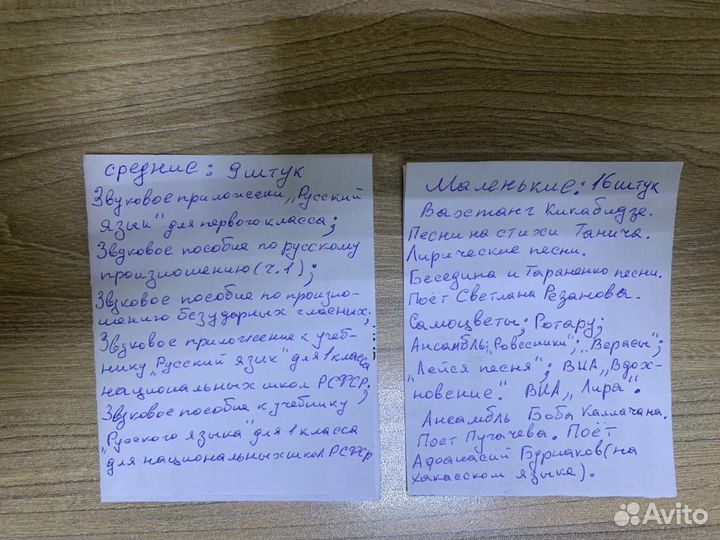 средние: 9 штук
Звуковое приложени „Русский
язик" для первого класса;
Звуковое пособие по русскому
произношению (ч.1);
Звуковое пособие по произно-
шению безударных гласних;
Звуковое приложение к учеб-
нику „Русский язик" для 1 класса
национальных школ РСФСР;
Звуковое пособие к учебнику
„Русского языка" для 1 класса
для национальных школ РСФСР
Маленькие: 16 штук
Вахтанг Кикабидзе.
Песни на стихи Танича.
Лирические песни.
Беседина и Тараненко песни.
Поёт Светлана Резанова.
Самоцветы; Ротару;
Ансамбль: „Ровесники"; „Верасы";
„Лейся песня"; ВИА „Вдох-
новение". ВИА „Лира".
Ансамбль Боба Каллачана.
Поет Пугачева. Поёт
Афоанасий Бурнаков (на
хакасском языке).
Avito